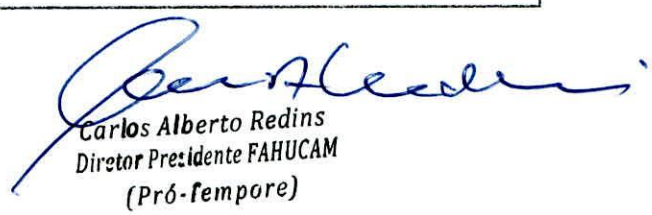 Carlos Alberto Redins
Diretor Presidente FAHUCAM
(Pró-tempore)